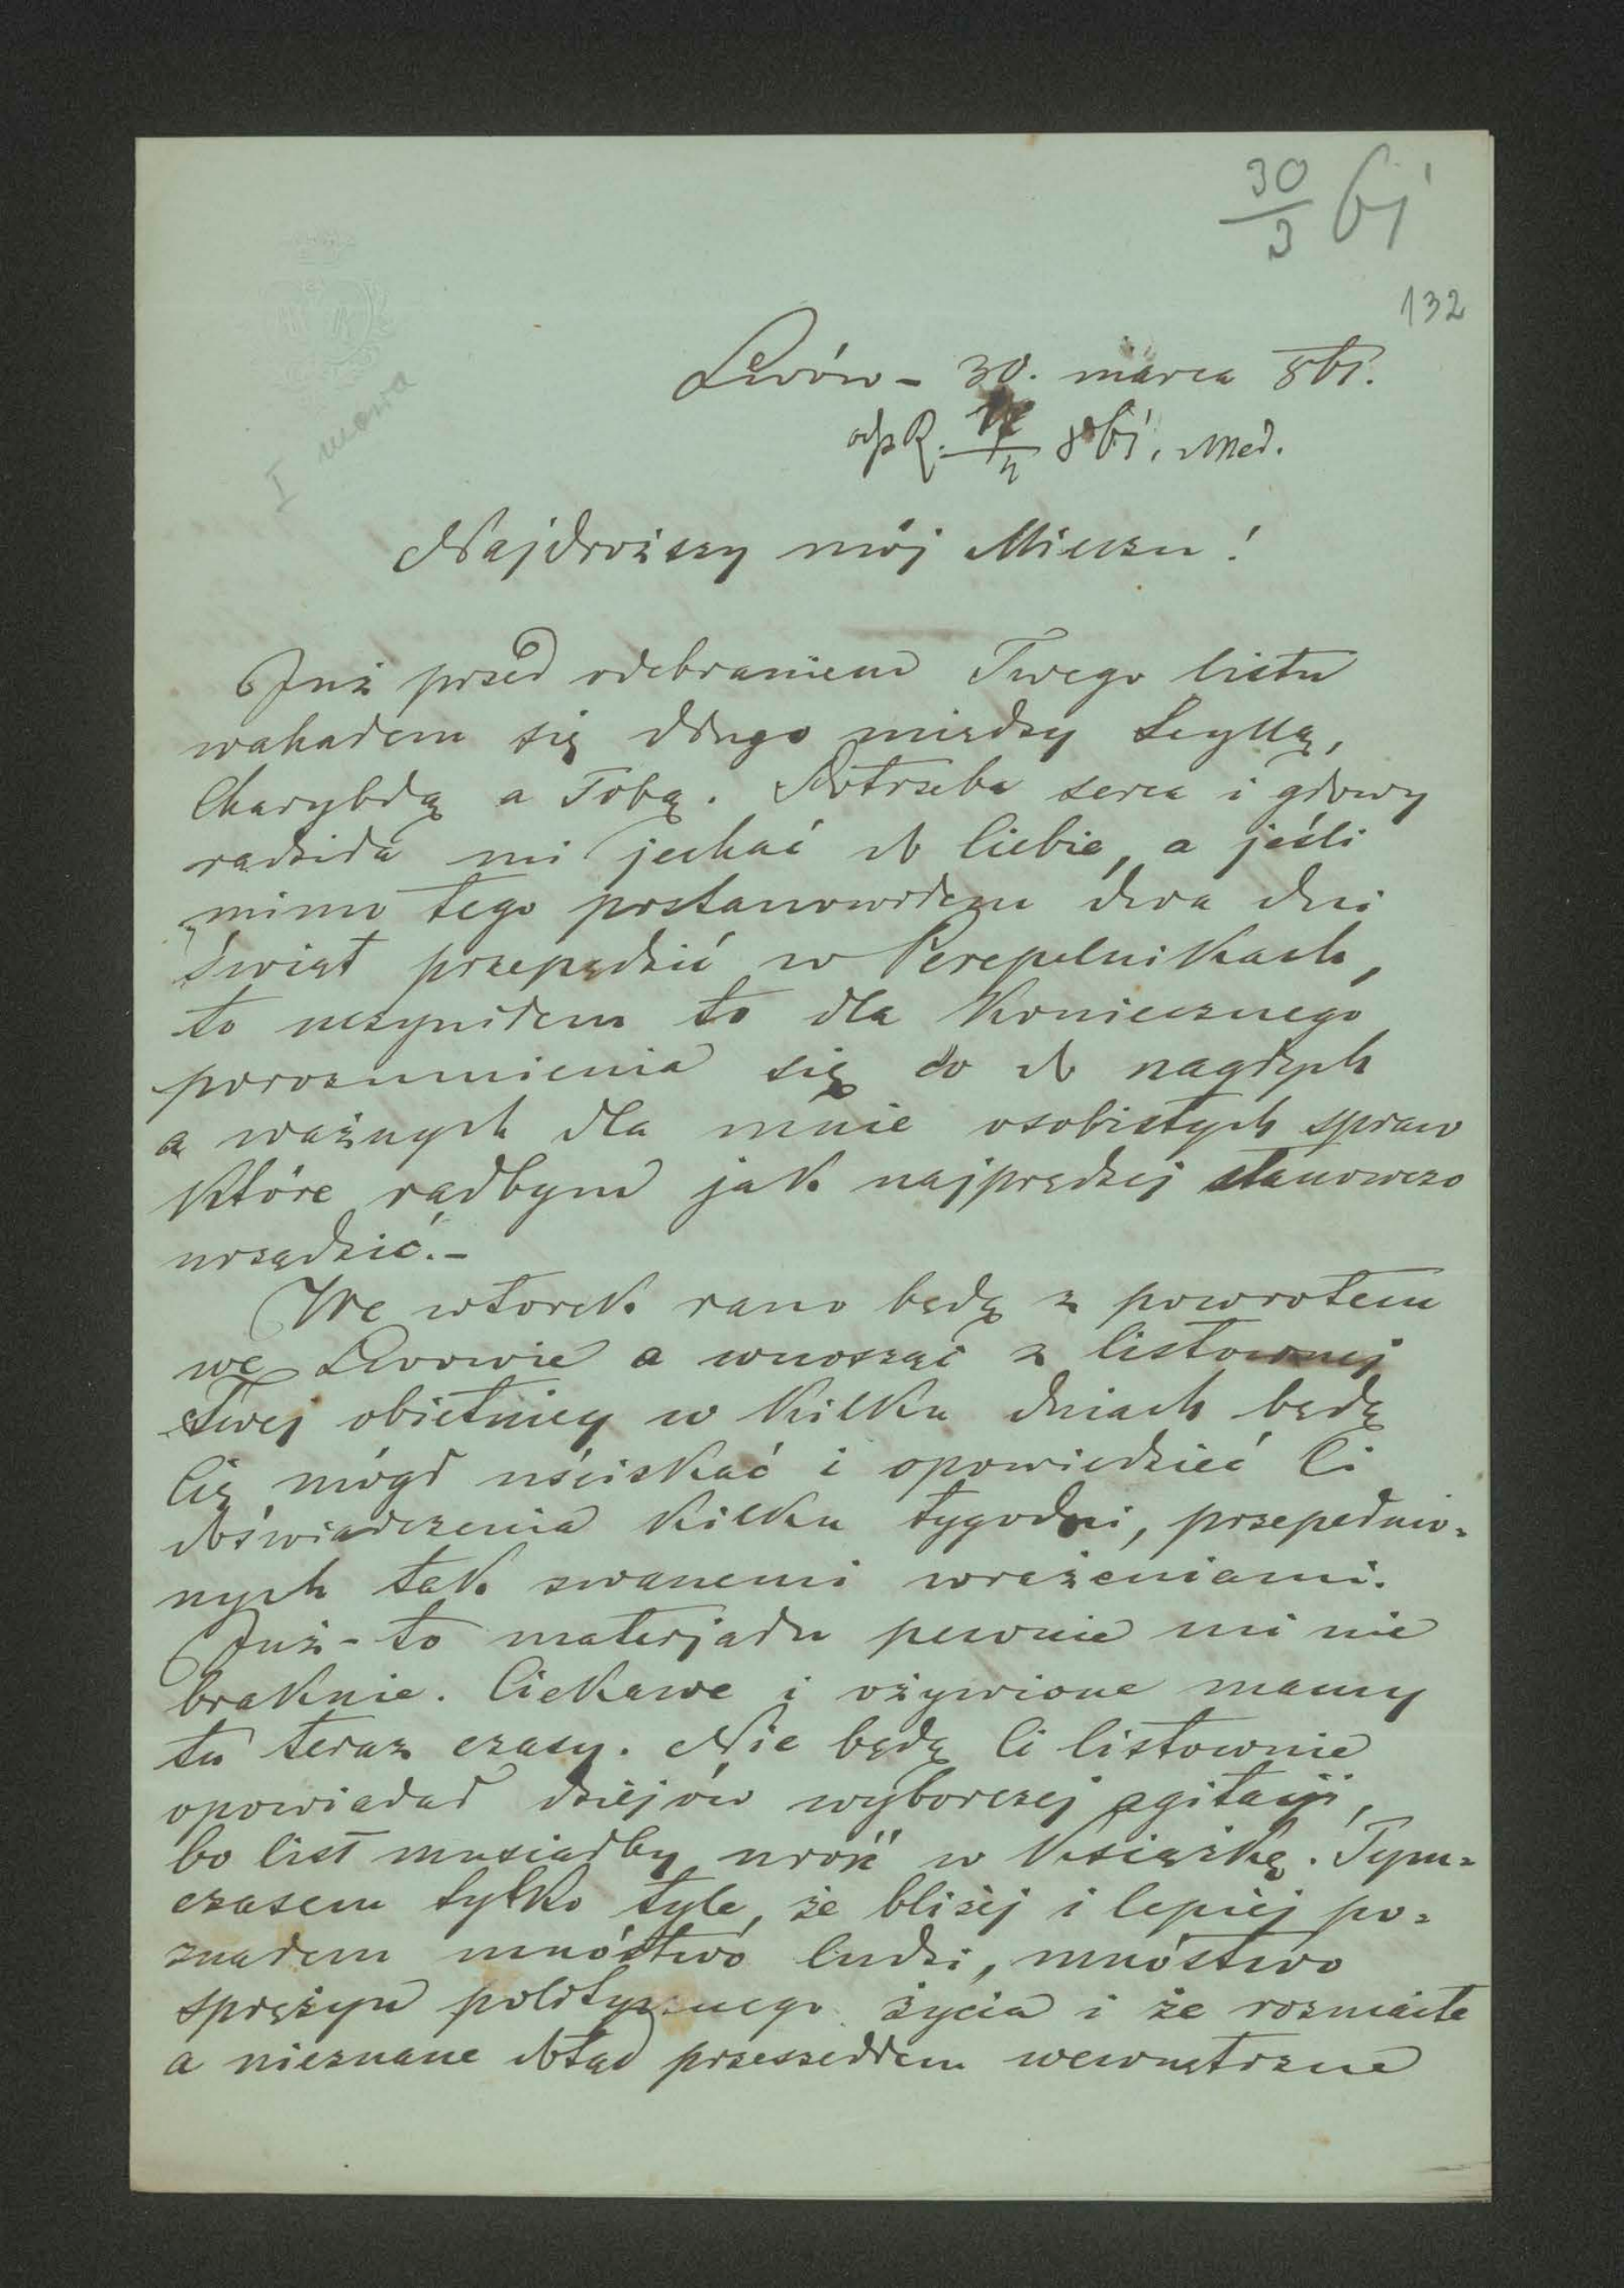 30/3 61
132
Lwów – 30. marca 861.
odp R. 861. Med.
I mowa
Najdroższy mój Mieciu!
Już przed odebraniem Twego listu
wahałem się długo między Scyllą,
Charybdą a Tobą. Potrzeba serca i głowy
radziła mi jechać do Ciebie, a jeśli
mimo tego postanowiłem dwa dni
świąt przepędzić w Perepelnikach,
to uczyniłem to dla koniecznego
porozumienia się co do nagłych
a ważnych dla mnie osobistych spraw
które radbym jak najprędzej stanowczo
urządzić. –
We wtorek rano będę z powrotem
we Lwowie a wnosząc z listownej
Twej obietnicy w kilku dniach będę
Cię mógł uściskać i opowiedzieć Ci
doświadczenia kilku tygodni, przepełnio=
nych tak zwanemi wrażeniami.
Już-to materjału pewnie mi nie
braknie. Ciekawe i ożywione mamy
tu teraz czasy. Nie będę Ci listownie
opowiadał dziejów wyborczej agitacji,
bo list musiałby uróść w książkę. Tym=
czasem tylko tyle, że bliżej i lepiej po=
znałem mnóstwo ludzi, mnóstwo
sprężyn politycznego życia i że rozmaite
a nieznane dotąd przeszedłem wewnętrzne